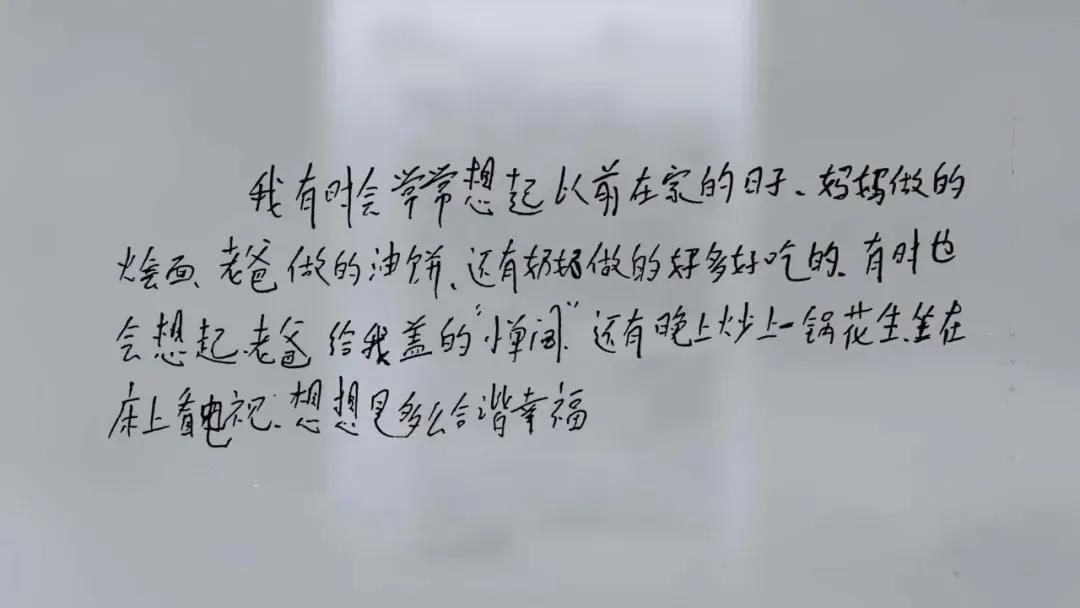 我有时会常常想起以前在家的日子、妈妈做的
烩面、老爸做的油饼、还有奶奶做的好多好吃的、有时也
会想起、老爸给我盖的"小单间"、还有晚上炒上一锅花生、坐在
床上看电视、想想是多么合谐幸福